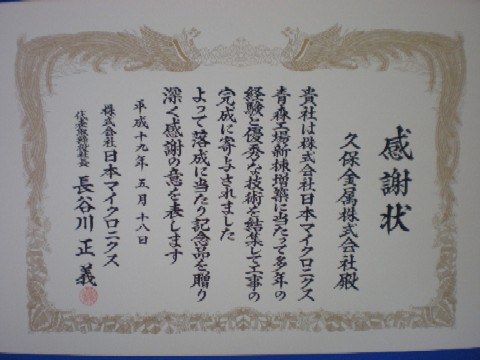 感謝状
久保金属株式会社殿
貴社は株式会社日本マイクロニクス
青森工場新棟増築に当たって多年の
経験と優秀な技術を結集して工事の
完成に寄与されました
よって落成に当たり記念品を贈り
深く感謝の意を表します
平成十九年五月十八日
株式会社日本マイクロニクス
代表取締役社長 長谷川正義